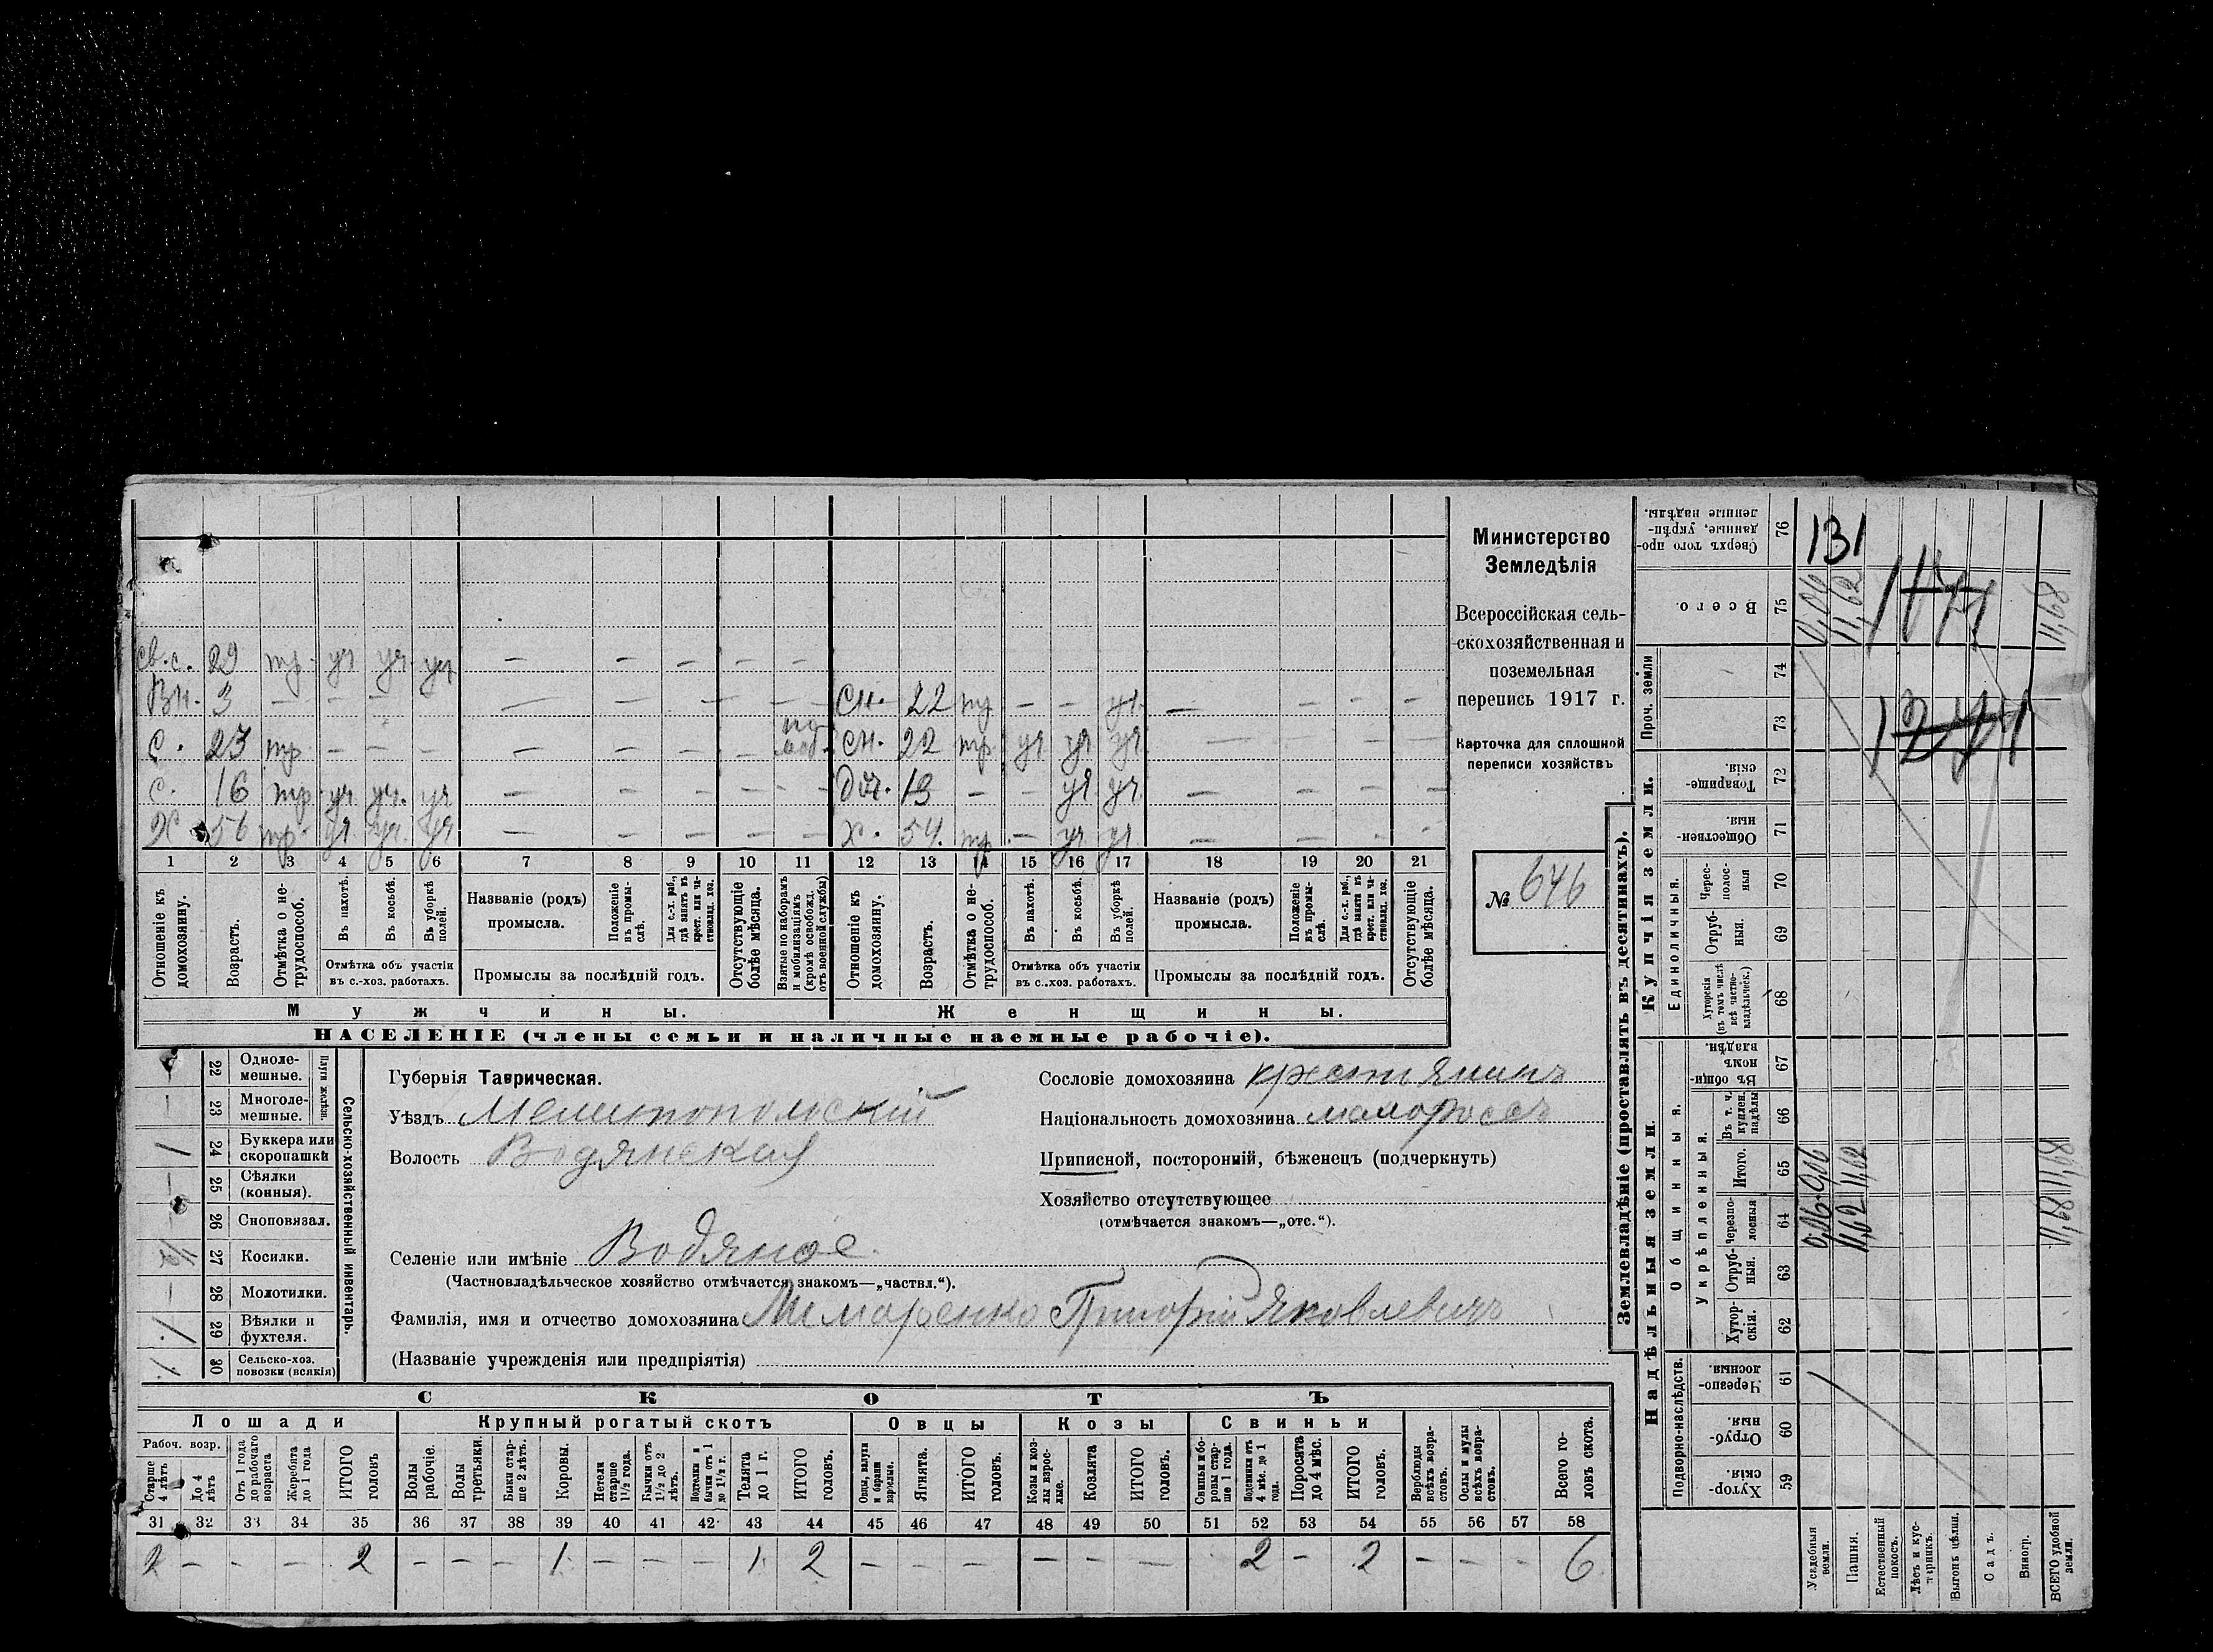 св. с. 29 тр. уч уч. уч — — — — —
Вн. 3 — — — — — — — — — сн. 22 тр — — уч. — — — —
с. 23 тр. — — — — — — — по моб. сн. 22 тр. уч уч уч — — — —
с. 16 тр. уч. уч. уч — — — — — доч. 13 — — уч уч. — — — —
Х 56 тр. уч. уч. уч — — — — — х. 54. тр. — уч уч. — — — —
1 2 3 4 5 6 7 8 9 10 11 12 13 14 15 16 17 18 19 20 21
Отношеніе къ домохозяину.
Возрастъ.
Отмѣтка о нетрудоспособ.
Въ пахотѣ.
Въ косьбѣ.
Въ уборкѣ полей.
Отмѣтка объ участіи въ с.-хоз. работахъ.
Названіе (родъ) промысла.
Положеніе въ промыслѣ.
Для с.-х. раб., гдѣ занятъ въ крест. или частновлад. хоз.
Промыслы за послѣдній годъ.
Отсутствующіе болѣе мѣсяца.
Взятые по наборамъ и мобилизаціямъ (кромѣ освобожд. отъ военной службы)
Отношеніе къ домохозяину.
Возрастъ.
Отмѣтка о нетрудоспособ.
Въ пахотѣ.
Въ косьбѣ.
Въ уборкѣ полей.
Отмѣтка объ участіи въ с.-хоз. работахъ.
Названіе (родъ) промысла.
Положеніе въ промыслѣ.
Для с.-х. раб., гдѣ занята въ крест. или частновлад. хоз.
Промыслы за послѣдній годъ.
Отсутствующіе болѣе мѣсяца.
Мужчины. Женщины.
НАСЕЛЕНІЕ (члены семьи и наличные наемные рабочіе).
Министерство
Земледѣлія
Всероссійская сель-
скохозяйственная и
поземельная
перепись 1917 г.
Карточка для сплошной
переписи хозяйствъ
№ 646
Сельско-хозяйственный инвентарь.
Плуги желѣзн.
— 22 Однолемешные.
— 23 Многолемешные.
1 24 Буккера или скоропашки
— 25 Сѣялки (конныя).
— 26 Сноповязал.
1/2 27 Косилки.
— 28 Молотилки.
1. 29 Вѣялки и фухтеля.
1. 30 Сельско-хоз. повозки (всякія)
Губернія Таврическая.
Уѣздъ Мелитопольскій
Волость Водянская
Селеніе или имѣніе Водяное
(Частновладѣльческое хозяйство отмѣчается знакомъ—„частвл.“).
Фамилія, имя и отчество домохозяина Григорій Яковлевичъ
(Названіе учрежденія или предпріятія)
Сословіе домохозяина крестьянинъ
Національность домохозяина малороссъ
Приписной, посторонній, бѣженец (подчеркнуть)
Хозяйство отсутствующее
(отмѣчается знакомъ—„отс.“).
СКОТЪ
Лошади Крупный рогатый скотъ Овцы Козы Свиньи
Рабоч. возр.
Старше 4 лѣтъ
До 4 лѣтъ
Отъ 1 года до рабочаго возраста
Жеребята до 1 года
ИТОГО головъ
Волы рабочіе.
Волы третьяки.
Быки старше 2 лѣтъ.
Коровы.
Нетели старше 1½ года.
Бычки отъ 1½ до 2 лѣтъ.
Подтелки и бычки отъ 1 до 1½ г.
Телята до 1 г.
ИТОГО головъ.
Овцы, валухи и бараны взрослые.
Ягнята.
ИТОГО головъ.
Козы и козлы взрослые.
Козлята
ИТОГО головъ.
Свиньи и боровы старше 1 года.
Подсвинки отъ 4 мѣс. до 1 года.
Поросята до 4 мѣс.
ИТОГО головъ.
Верблюды всѣхъ возрастовъ.
Ослы и мулы всѣхъ возрастовъ.
Всего головъ скота.
31 32 33 34 35 36 37 38 39 40 41 42 43 44 45 46 47 48 49 50 51 52 53 54 55 56 57 58
2 — — — 2 — — — 1 — — — 1 2 — — — — — — 2 — 2 — — — 6
Землевладѣніе (проставлять въ десятинахъ).
Сверхъ того проданные, укрѣпленные надѣлы. 76
Всего. 75
Проч. земли 74 73
Купчія земли.
Товарищескія. 72
Общественныя. 71
Единоличныя.
Чересполосныя 70
Отрубныя. 69
Хуторскія (въ томъ числѣ всѣ частновладѣльческ.) 68
Надѣльныя земли.
Общинныя.
Въ общинномъ владѣн. 67
Укрѣпленныя.
Въ т. ч. куплен. надѣлы 66
Итого. 65
Черезполосныя 64
Отрубныя. 63
Хуторскія. 62
Подворно-наслѣдств.
Черезполосныя. 61
Отрубныя. 60
Хуторскія. 59
131
0,06 11,62 11,68
0,06 0,06
11,62 11,62
11,68 11,68
Усадебныя земли.
Пашня.
Естественный покосъ.
Лѣсъ и кустарникъ.
Выгонъ цѣлин.
Садъ.
Виногр.
ВСЕГО удобной земли.